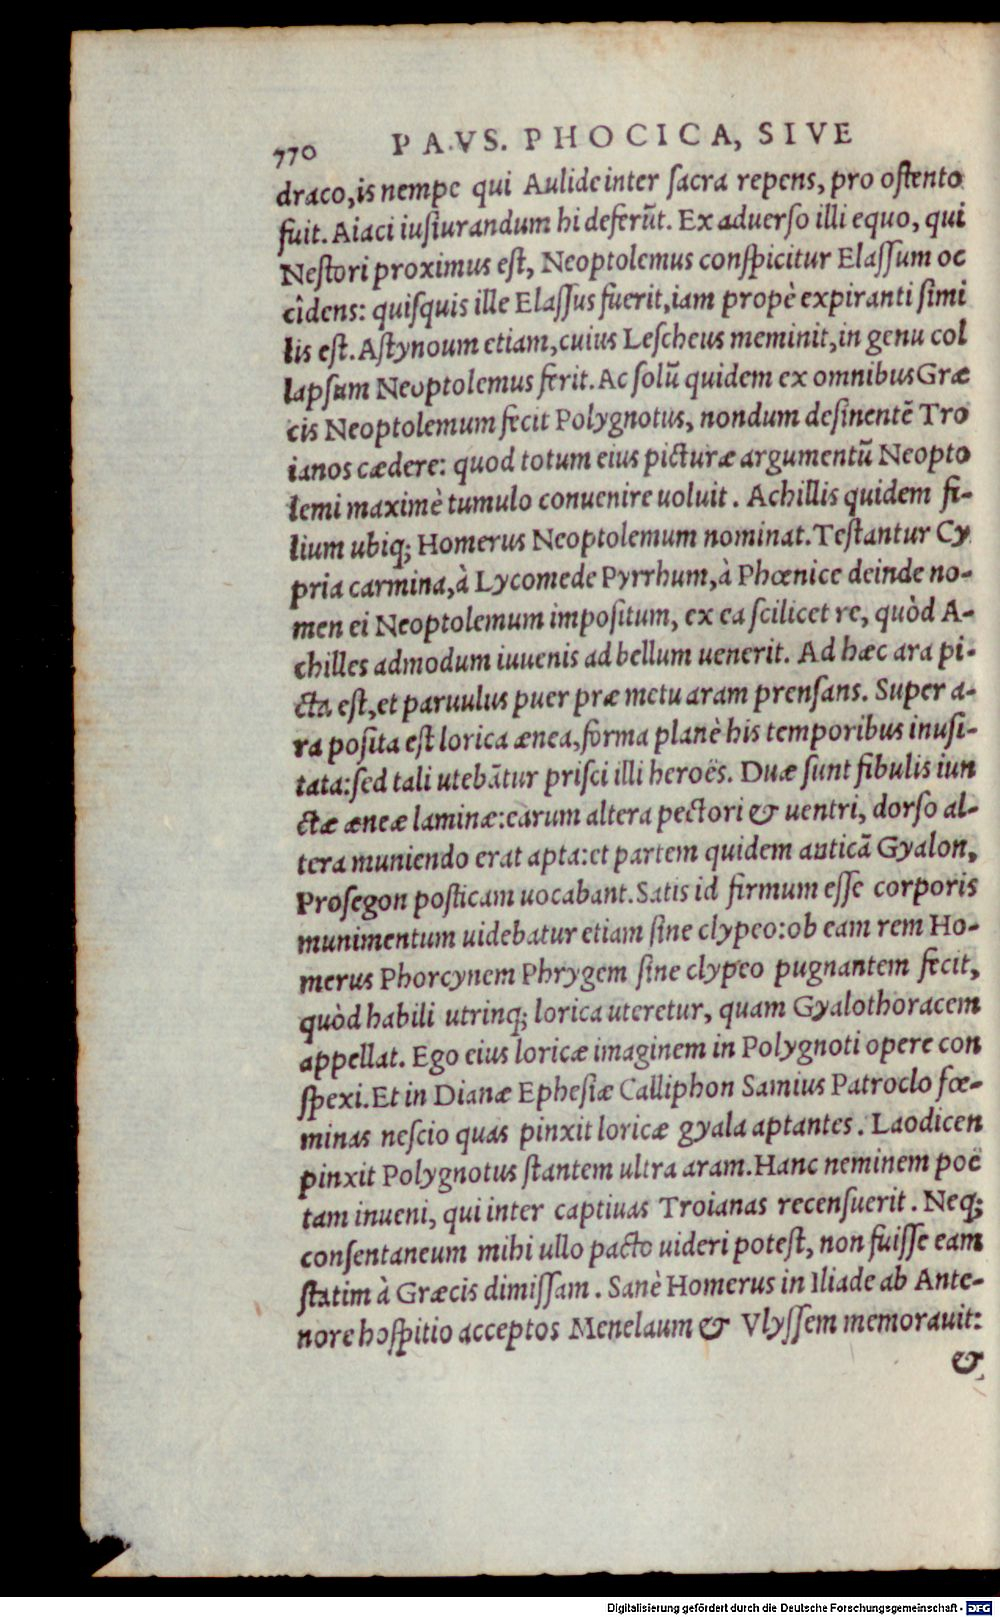 770 PAVS. PHOCICA, SIVE
draco, is nempe qui Aulide inter ſacra repens, pro oſtento
fuit. Aiaci iuſiurandum hi deferūt. Ex aduerſo illi equo, qui
Neſtori proximus eſt, Neoptolemus conſpicitur Elaſſum oc
cîdens: quiſquis ille Elaſſus fuerit, iam propè expiranti ſimi
lis eſt. Aſtynoum etiam, cuius Leſcheus meminit, in genu col
lapſum Neoptolemus ferit. Ac ſolū quidem ex omnibus Græ
cis Neoptolemum fecit Polygnotus, nondum deſinentē Tro
ianos cædere: quod totum eius picturæ argumentū Neopto
lemi maximè tumulo conuenire uoluit. Achillis quidem fi-
lium ubiq; Homerus Neoptolemum nominat. Teſtantur Cy
pria carmina, à Lycomede Pyrrhum, à Phœnice deinde no-
men ei Neoptolemum impoſitum, ex ea ſcilicet re, quòd A-
chilles admodum iuuenis ad bellum uenerit. Ad hæc ara pi-
cta eſt, et paruulus puer præ metu aram prenſans. Super a-
ra poſita eſt lorica ænea, forma planè his temporibus inuſi-
tata: ſed tali utebātur priſci illi heroës. Duæ ſunt fibulis iun
ctæ æneæ laminæ: earum altera pectori & uentri, dorſo al-
tera muniendo erat apta: et partem quidem anticā Gyalon,
Proſegon poſticam uocabant. Satis id firmum eſſe corporis
munimentum uidebatur etiam ſine clypeo: ob eam rem Ho-
merus Phorcynem Phrygem ſine clypeo pugnantem fecit,
quòd habili utrinq; lorica uteretur, quam Gyalothoracem
appellat. Ego eius loricæ imaginem in Polygnoti opere con
ſpexi. Et in Dianæ Epheſiæ Calliphon Samius Patroclo fœ-
minas neſcio quas pinxit loricæ gyala aptantes. Laodicen
pinxit Polygnotus ſtantem ultra aram. Hanc neminem poë
tam inueni, qui inter captiuas Troianas recenſuerit. Neq;
conſentaneum mihi ullo pacto uideri poteſt, non fuiſſe eam
ſtatim à Græcis dimiſſam. Sanè Homerus in Iliade ab Ante-
nore hoſpitio acceptos Menelaum & Vlyſſem memorauit:
&
Digitalisierung gefördert durch die Deutsche Forschungsgemeinschaft - DFG